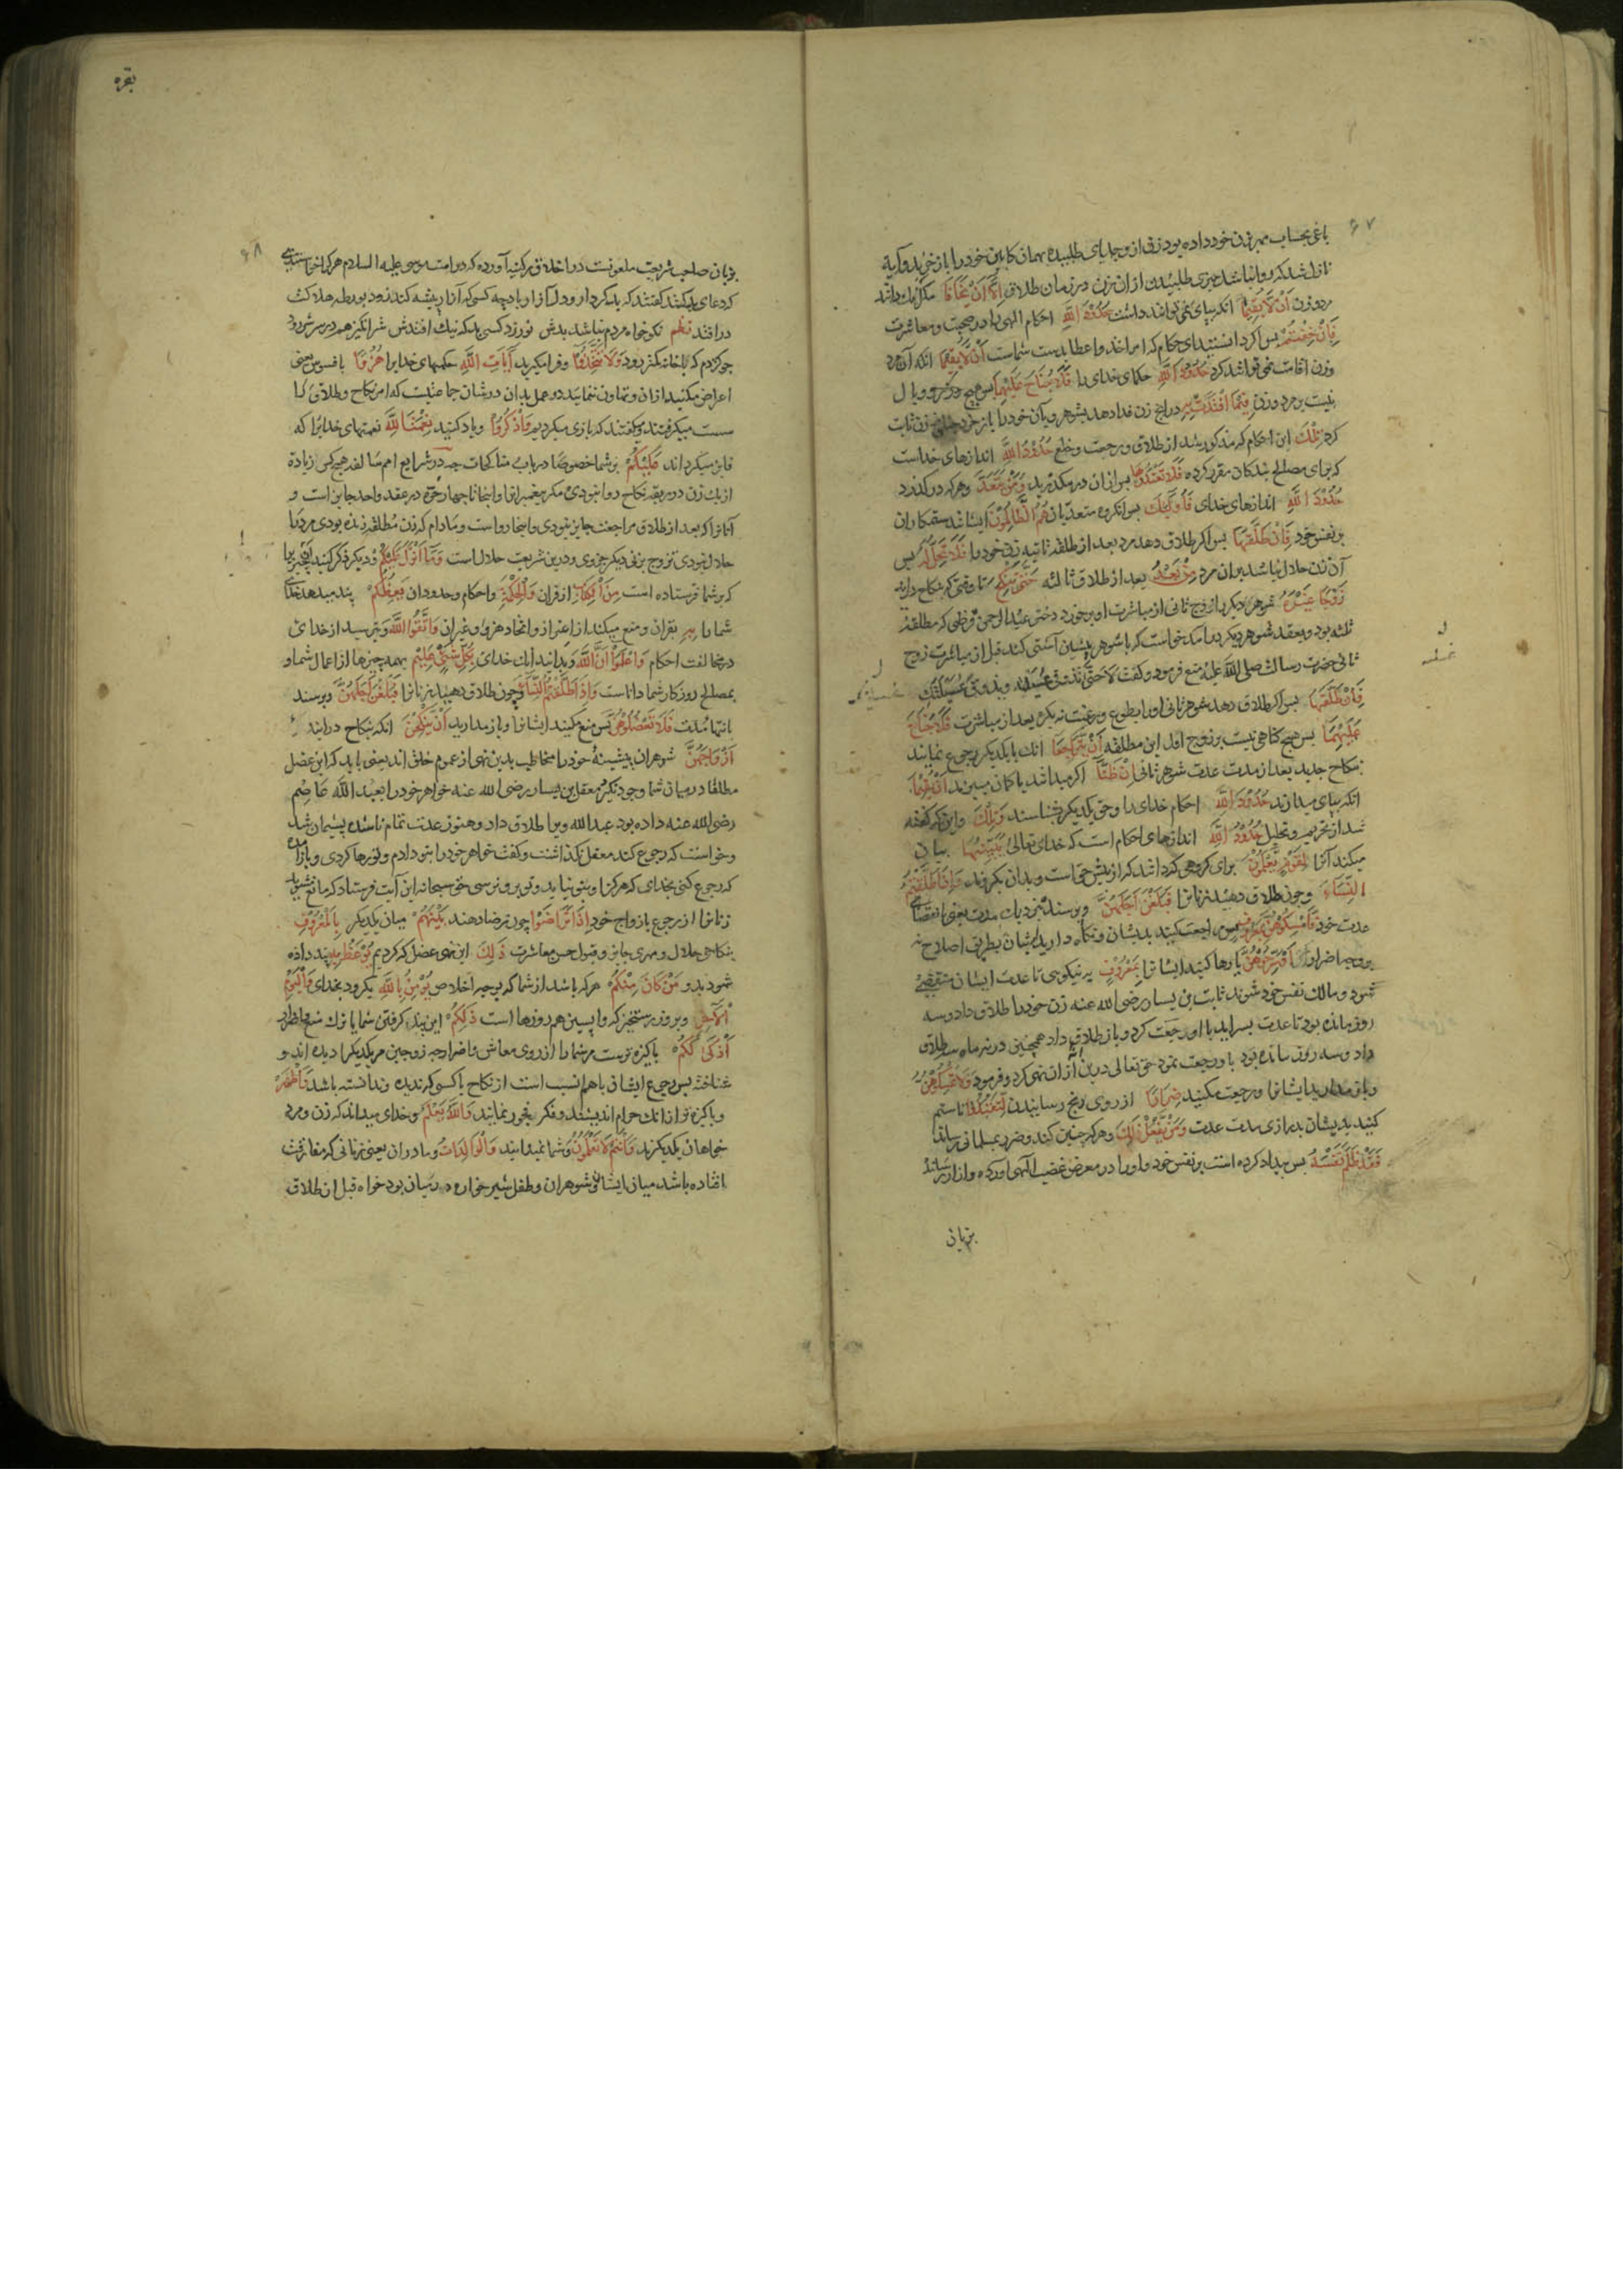 ۶۷
باغی بحساب مهر بزن خود داده بود زن از وجدایی طلبیده همان کابین خود را باز خرید و آیه
نازل شد که روا نباشد چیزی طلبیدن ازان زن در زمان طلاق إِلَّا أَنْ يَخَافَا مگر آنک دانند
مرد و زن أَنْ لَا يُقِيمَا انکه بپای نمی توانند داشت حُدُودَ اللهِ احکام الهی را در صحبت و معاشرت
فَإِنْ خِفْتُمْ پس اگر دانستید ای حکام که امر اخذ و اعطا بدست شماست أَنْ لَا يُقِيمَا انکه آن مرد
وزن اقامت نمی توانند کرد حُدُودَ اللهِ حکمهای خدای را فَلَا جُنَاحَ عَلَيْهِمَا پس هیچ وزر و وبال
نیست بر مرد وزن فِيمَا افْتَدَتْ بِهِ در انچه زن فدا دهد بشوهر و بآن خود را باز خرد
کرد تِلْكَ این احکام که مذکور شد از طلاق و رجعت و خلع حُدُودُ اللهِ اندازهای خداست
که برای مصالح بندکان مقرر کرده فَلَا تَعْتَدُوهَا پس ازان در مکذرید وَمَنْ يَتَعَدَّ وهرکه در کذرد
حُدُودَ اللهِ اندازهای خدای فَأُولَئِكَ پس انکروه متعدیان هُمُ الظَّالِمُونَ ایشانند ستمکاران
بر نفس خود فَإِنْ طَلَّقَهَا پس اکر طلاق دهد مرد بعد از طلقه ثانیه زن خود را فَلَا تَحِلُّ لَهُ پس
آن زن حلال نباشد بران مرد مِنْ بَعْدُ بعد از طلاق ثالثه حَتَّى تَنْكِحَ تا وقتی که بنکاح در آید
زَوْجًا غَيْرَهُ شوهر دیکر یا زوج ثانی از مباشرت او برخورد دختر عبد الرحمن قرظی که مطلقه
ثلثه بود و بعقد شوهر دیکر درامد میخواست که با شوهر پیشین آشتی کند قبل از مباشرت زوج
ثانی حضرت رسالت صلی الله علیه منع فرمود و کفت لا حتی تذوقی عسیلته ویذوق عسیلتك
فَإِنْ طَلَّقَهَا پس اکر طلاق دهد شوهر ثانی او را بطوع و رغبت نه بکره بعد از مباشرت فَلَا جُنَاحَ
عَلَيْهِمَا پس هیچ کناهی نیست بر زوج اول این مطلقه أَنْ يَتَرَاجَعَا انك با یکدیکر رجوع نمایند
بنکاح جدید بعد از مدت عدت شوهر ثانی إِنْ ظَنَّا اکر میدانند یا کمان میبرند أَنْ يُقِيمَا
انکه بپای میدارند حُدُودَ اللهِ احکام خدای را و حق یکدیکر بشناسند وَتِلْكَ واین که کفته
شد از تحریم و تحلیل حُدُودُ اللهِ اندازهای احکام است که خدای تعالی يُبَيِّنُهَا بیان
میکند آنرا لِقَوْمٍ يَعْلَمُونَ برای کروهی که دانند که از پیش حق است و بدان بکروند وَإِذَا طَلَّقْتُمُ
النِّسَاءَ وچون طلاق دهید زنانرا فَبَلَغْنَ أَجَلَهُنَّ وبرسند بنزدیك مدت یعنی انقضای
عدت خود فَأَمْسِكُوهُنَّ بِمَعْرُوفٍ پس مراجعت کنید بدیشان و نکاه دارید ایشان بطریق اصلاح نه
بر وجه اضرار أَوْ سَرِّحُوهُنَّ یا رها کنید ایشانرا بِمَعْرُوفٍ به نیکویی تا عدت ایشان منقضی
شود و مالك نفس خود شوند ثابت بن یسار رضی الله عنه زن خود را طلاق داد و سه
روز مانده بود تا عدت بسر آید با او رجعت کرد و باز طلاق داد همچنین در نه ماه سه طلاق
داد و سه روز مانده بود با او رجعت نمود حق تعالی درین آیه ازان نهی کرد و فرمود وَلَا تُمْسِكُوهُنَّ
وباز مدارید ایشانرا و رجعت مکنید ضِرَارًا از روی رنج رسانیدن لِتَعْتَدُوا تا ستم
کنید بدیشان بدرازی مدت عدت وَمَنْ يَفْعَلْ ذَلِكَ وهرکه چنین کند و ضرر بمسلمانی رساند
فَقَدْ ظَلَمَ نَفْسَهُ پس بیداد کرده است بر نفس خود و او را در معرض غضب الهی اورده
بزبان
بقره
۶۸
بزبان صاحب شریعت ملعونست در اخلاق
کردعای بد
در افتد نظم نکو خواه مردم نباشد بدش نورزد کسی بد که نیك افتدش شر انکیز هم در سر شر رود
چو کژدم که با خانه کمتر رود وَلَا تَتَّخِذُوا وفرا مکیرید آيَاتِ اللهِ حکمهای خدایرا هُزُوًا بافسوس یعنی
اعراض مکنید ازان و تهاون ننمایید در عمل بدان در شان جماعتیست که امر نکاح و طلاق را
سست میکرفتند و میکفتند که بازی میکردیم وَاذْكُرُوا ویاد کنید نِعْمَتَ اللهِ نعمتهای خدایرا که
فایز میکرداند عَلَيْكُمْ بر شما خصوصا در باب مناکحات چه در شرایع امم سالفه هیچکس زیاده
از یك زن در ربقه نکاح روا نبودی مکر پیغمبرانرا واینجا تا چهار حره در عقد واحد جایز است و
آنانرا که بعد از طلاق مراجعت جایز نبودی واینجا رواست ومادام که زن مطلقه زنده بودی مرد را
حلال نبودی تزوج بزنی دیکر و درین شریعت حلال است وَمَا أَنْزَلَ عَلَيْكُمْ ودیکر ذکر کنید
که بر شما فرستاده است مِنَ الْكِتَابِ از قران وَالْحِكْمَةِ واحکام وحدود ان يَعِظُكُمْ پند میدهد خدای
شما را بِهِ بقران و منع میکند از اضرار و اتخاذ هزو وغیر ان وَاتَّقُوا اللهَ وبترسید از خدای
در مخالفت احکام وَاعْلَمُوا أَنَّ اللهَ وبدانید آنك خدای بِكُلِّ شَيْءٍ عَلِيمٌ بهمه چیزها از اعمال شما و
بمصالح روزکار شما داناست وَإِذَا طَلَّقْتُمُ النِّسَاءَ وچون طلاق دهید زنانرا فَبَلَغْنَ أَجَلَهُنَّ وبرسند
بانتهای مدت فَلَا تَعْضُلُوهُنَّ پس منع مکنید ایشانرا و باز مدارید أَنْ يَنْكِحْنَ انکه بنکاح درایند
أَزْوَاجَهُنَّ شوهران پیشینه خود را مخاطب بدین نهی از عموم خلق اند یعنی باید که این عضل
مطلقا در میان شما وجود نکیرد معقل بن یسار رضی الله عنه خواهر خود را بعبد الله عاصم
رضی الله عنه داده بود عبد الله ویرا طلاق داد و هنوز عدت تمام ناشده پشیمان شد
وخواست که رجوع کند معقل نکذاشت و کفت خواهر خود را بتو دادم و تو رها کردی و باز آمده
که رجوع کنی بخدای که هرکز او بتو نیاید و تو برو نرسی حق سبحانه این آیت فرستاد که مانع مشوید
زنانرا از رجوع بازواج خود إِذَا تَرَاضَوْا چون رضا دهند بَيْنَهُمْ میان یکدیکر بِالْمَعْرُوفِ
بنکاحی حلال و مهری جایز و قبول حسن معاشرت ذَلِكَ این نهی عضل که کردیم يُوعَظُ بِهِ پند داده
شود بدو مَنْ كَانَ مِنْكُمْ هرکه باشد از شما که بوجه اخلاص يُؤْمِنُ بِاللهِ بکرود بخدای وَالْيَوْمِ
الْآخِرِ وبروز رستخیز که واپسین همه روزها است ذَلِكُمْ این پند کرفتن شما یا ترك منع واضرار
أَزْكَى لَكُمْ پاکیزه ترست مر شما را از روی معاش و اضرار چه زوجین مر یکدیکر را دیده اند و
شناخته پس رجوع ایشان باهم انسب است از نکاح با کسی که ندیده وندانسته باشد وَأَطْهَرُ
و پاکیزه تر از انك حرام اندیشند و فکر فجور نمایند وَاللهُ يَعْلَمُ وخدای میداند که زن و مرد
خواهان یکدیکرند وَأَنْتُمْ لَا تَعْلَمُونَ وشما نمیدانید وَالْوَالِدَاتُ ومادران یعنی زنانی که مفارقت
افتاده باشد میان ایشان و شوهران وطفل شیر خواره در میان بود خواه قبل از طلاق